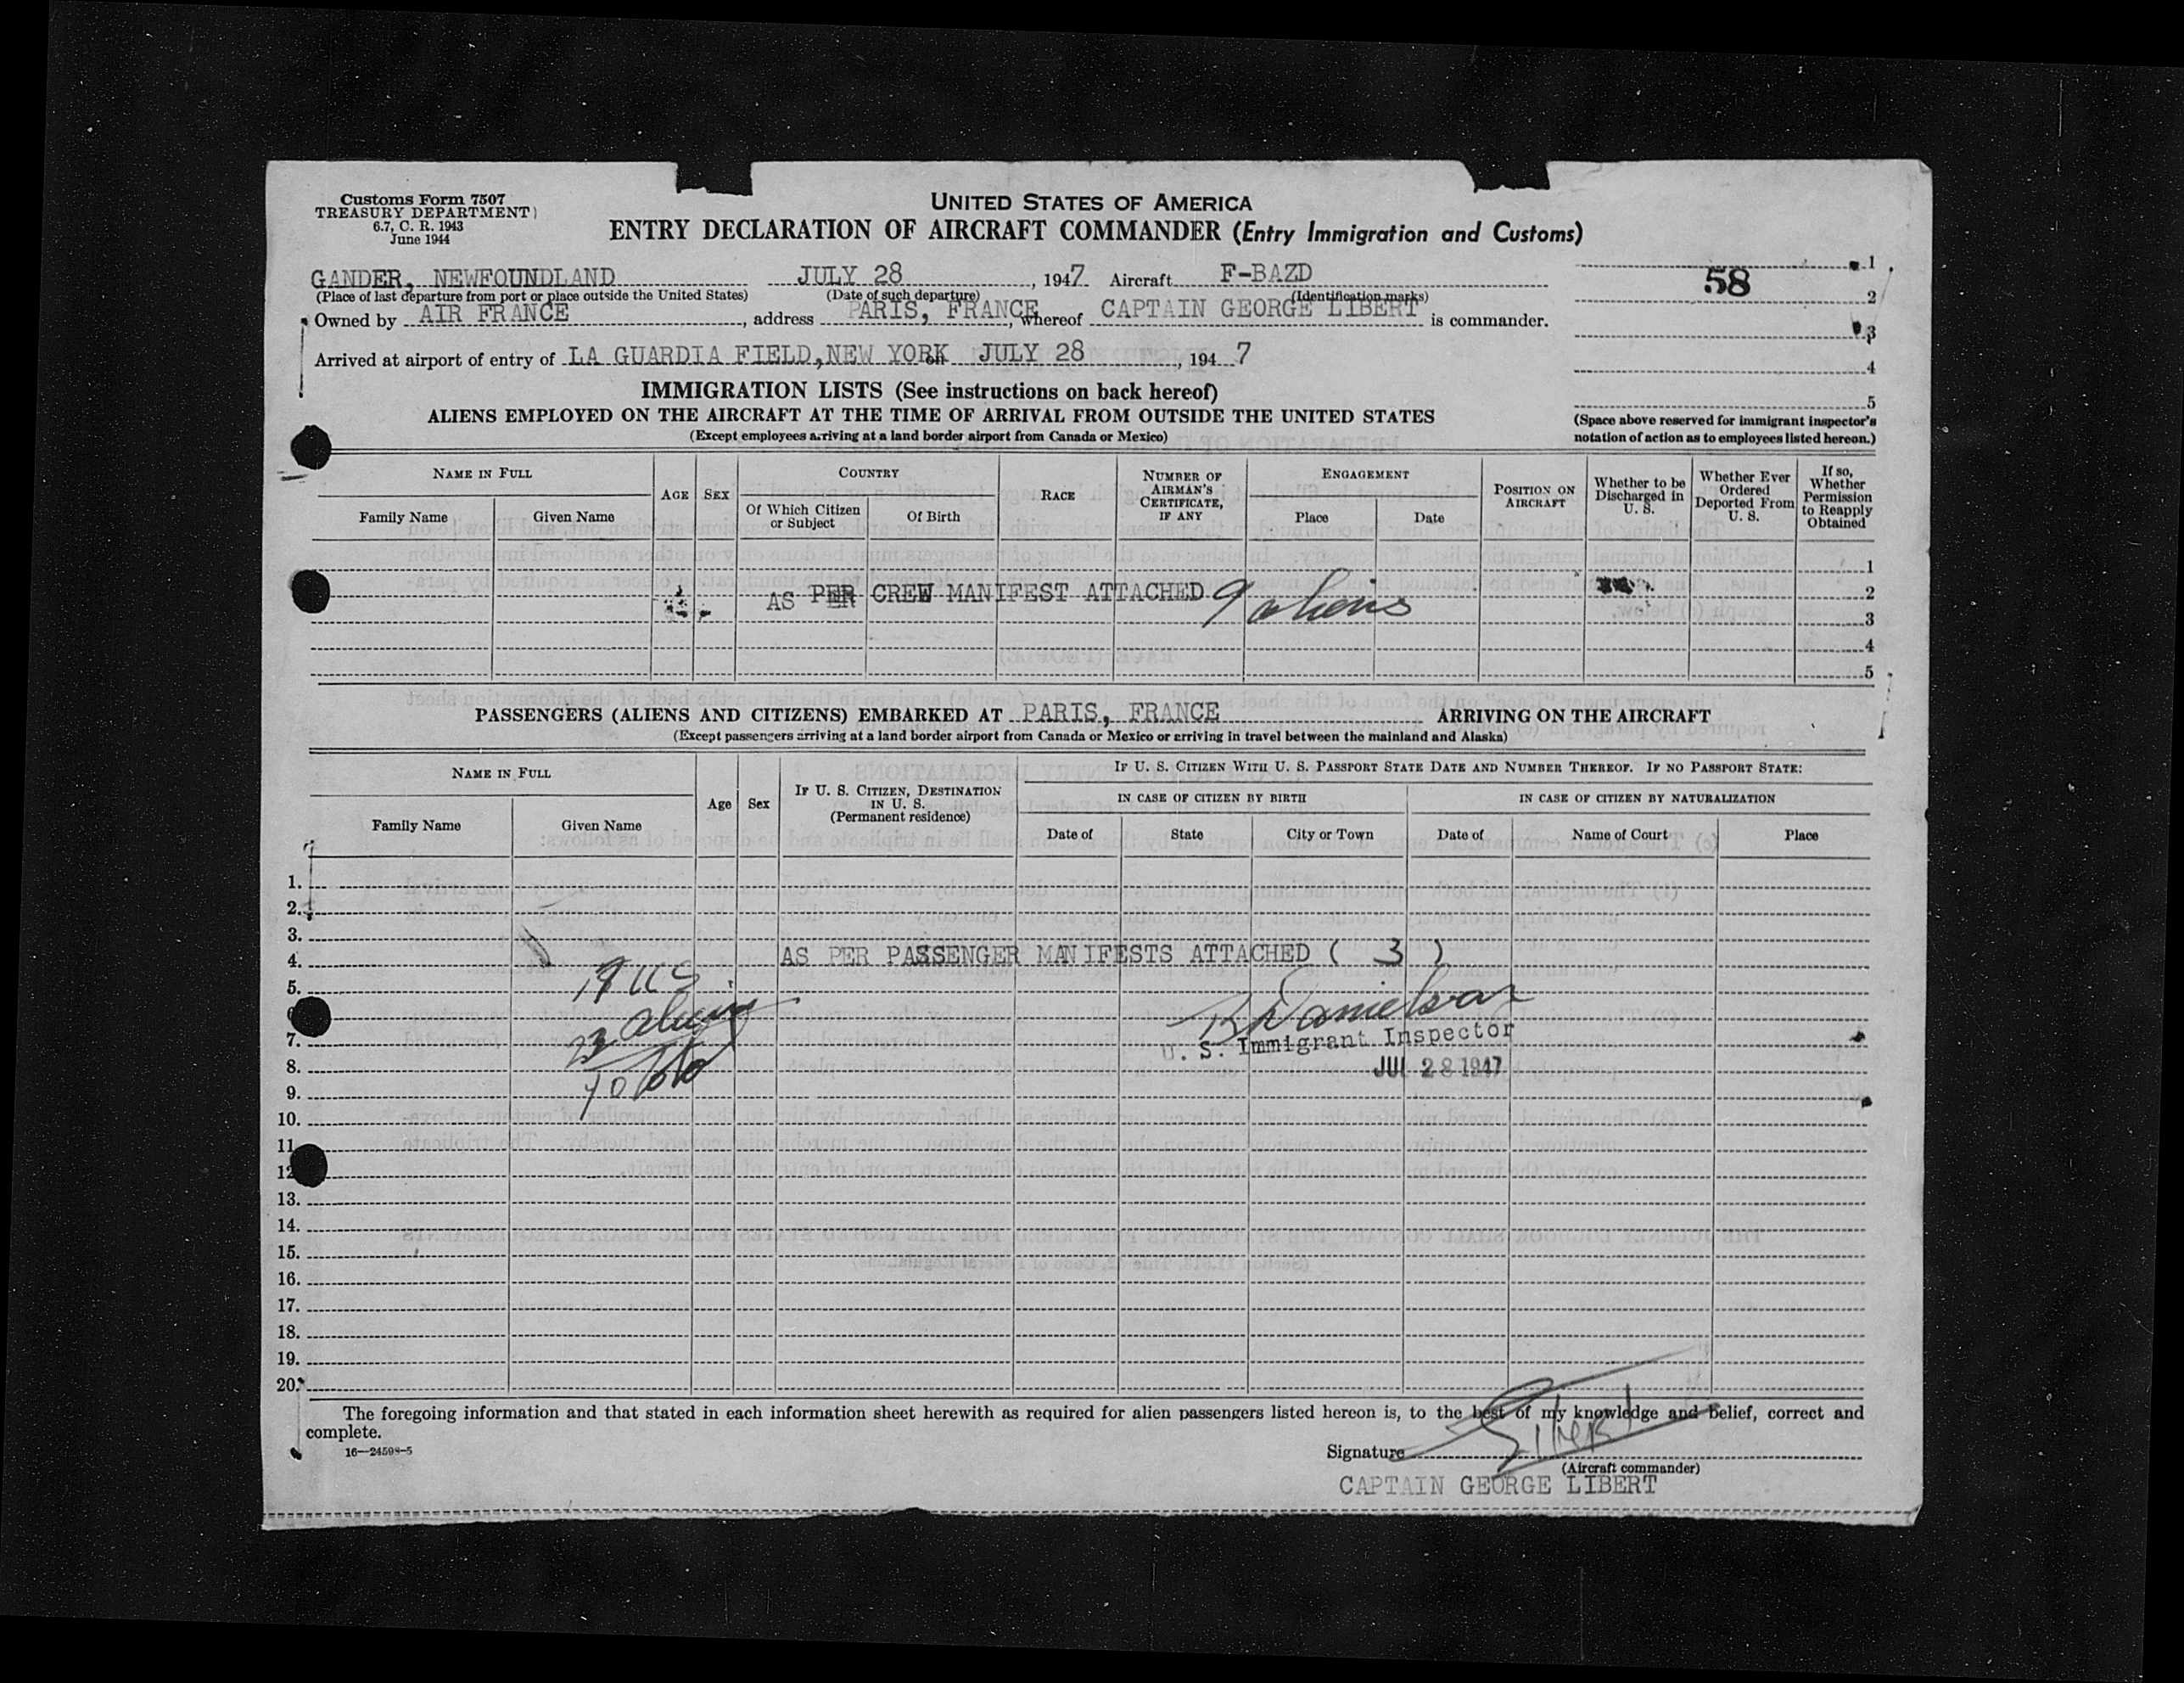 Customs Form 7507
TREASURY DEPARTMENT
6.7, C. R. 1943
June 1944
UNITED STATES OF AMERICA
ENTRY DECLARATION OF AIRCRAFT COMMANDER (Entry Immigration and Customs)
GANDER, NEWFOUNDLAND JULY 28, 1947 Aircraft F-BAZD
(Place of last departure from port or place outside the United States) (Date of such departure) (Identification marks)
Owned by AIR FRANCE, address PARIS, FRANCE, whereof CAPTAIN GEORGE LIBERT is commander.
Arrived at airport of entry of LA GUARDIA FIELD, NEW YORK on JULY 28, 1947
1
58
2
3
4
5
(Space above reserved for immigrant inspector's
notation of action as to employees listed hereon.)
IMMIGRATION LISTS (See instructions on back hereof)
ALIENS EMPLOYED ON THE AIRCRAFT AT THE TIME OF ARRIVAL FROM OUTSIDE THE UNITED STATES
(Except employees arriving at a land border airport from Canada or Mexico)
NAME IN FULL
Family Name Given Name
AGE
SEX
COUNTRY
Of Which Citizen or Subject Of Birth
RACE
NUMBER OF AIRMAN'S CERTIFICATE, IF ANY
ENGAGEMENT
Place Date
POSITION ON AIRCRAFT
Whether to be Discharged in U. S.
Whether Ever Ordered Deported From U. S.
If so, Whether Permission to Reapply Obtained
1
AS PER CREW MANIFEST ATTACHED 9 aliens 2
3
4
5
PASSENGERS (ALIENS AND CITIZENS) EMBARKED AT PARIS, FRANCE ARRIVING ON THE AIRCRAFT
(Except passengers arriving at a land border airport from Canada or Mexico or arriving in travel between the mainland and Alaska)
NAME IN FULL
Family Name Given Name
Age
Sex
IF U. S. CITIZEN, DESTINATION IN U. S.
(Permanent residence)
IF U. S. CITIZEN WITH U. S. PASSPORT STATE DATE AND NUMBER THEREOF. IF NO PASSPORT STATE:
IN CASE OF CITIZEN BY BIRTH IN CASE OF CITIZEN BY NATURALIZATION
Date of State City or Town Date of Name of Court Place
1.
2.
3.
4. AS PER PASSENGER MANIFESTS ATTACHED ( 3 )
5. US
aliens R Danielson
7. U. S. Immigrant Inspector
8. JUL 28 1947
9.
10.
11
12
13.
14.
15.
16.
17.
18.
19.
20.
The foregoing information and that stated in each information sheet herewith as required for alien passengers listed hereon is, to the best of my knowledge and belief, correct and
complete.
16—24598-5
Signature
(Aircraft commander)
CAPTAIN GEORGE LIBERT